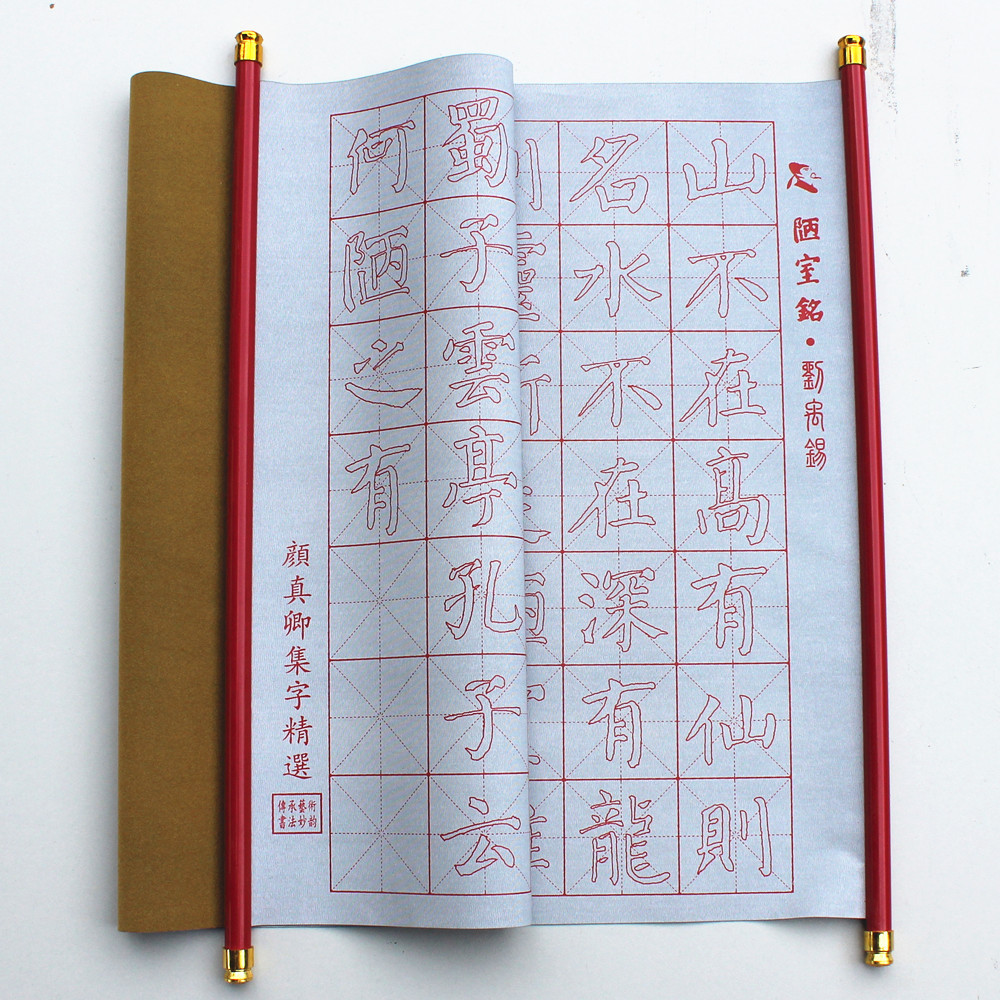 陋室銘•劉禹錫
山不在髙有仙則
名水不在深有龍
蜀子雲亭孔子云
何陋之有
顔真卿集字精選
傳承藝術
書法妙韵